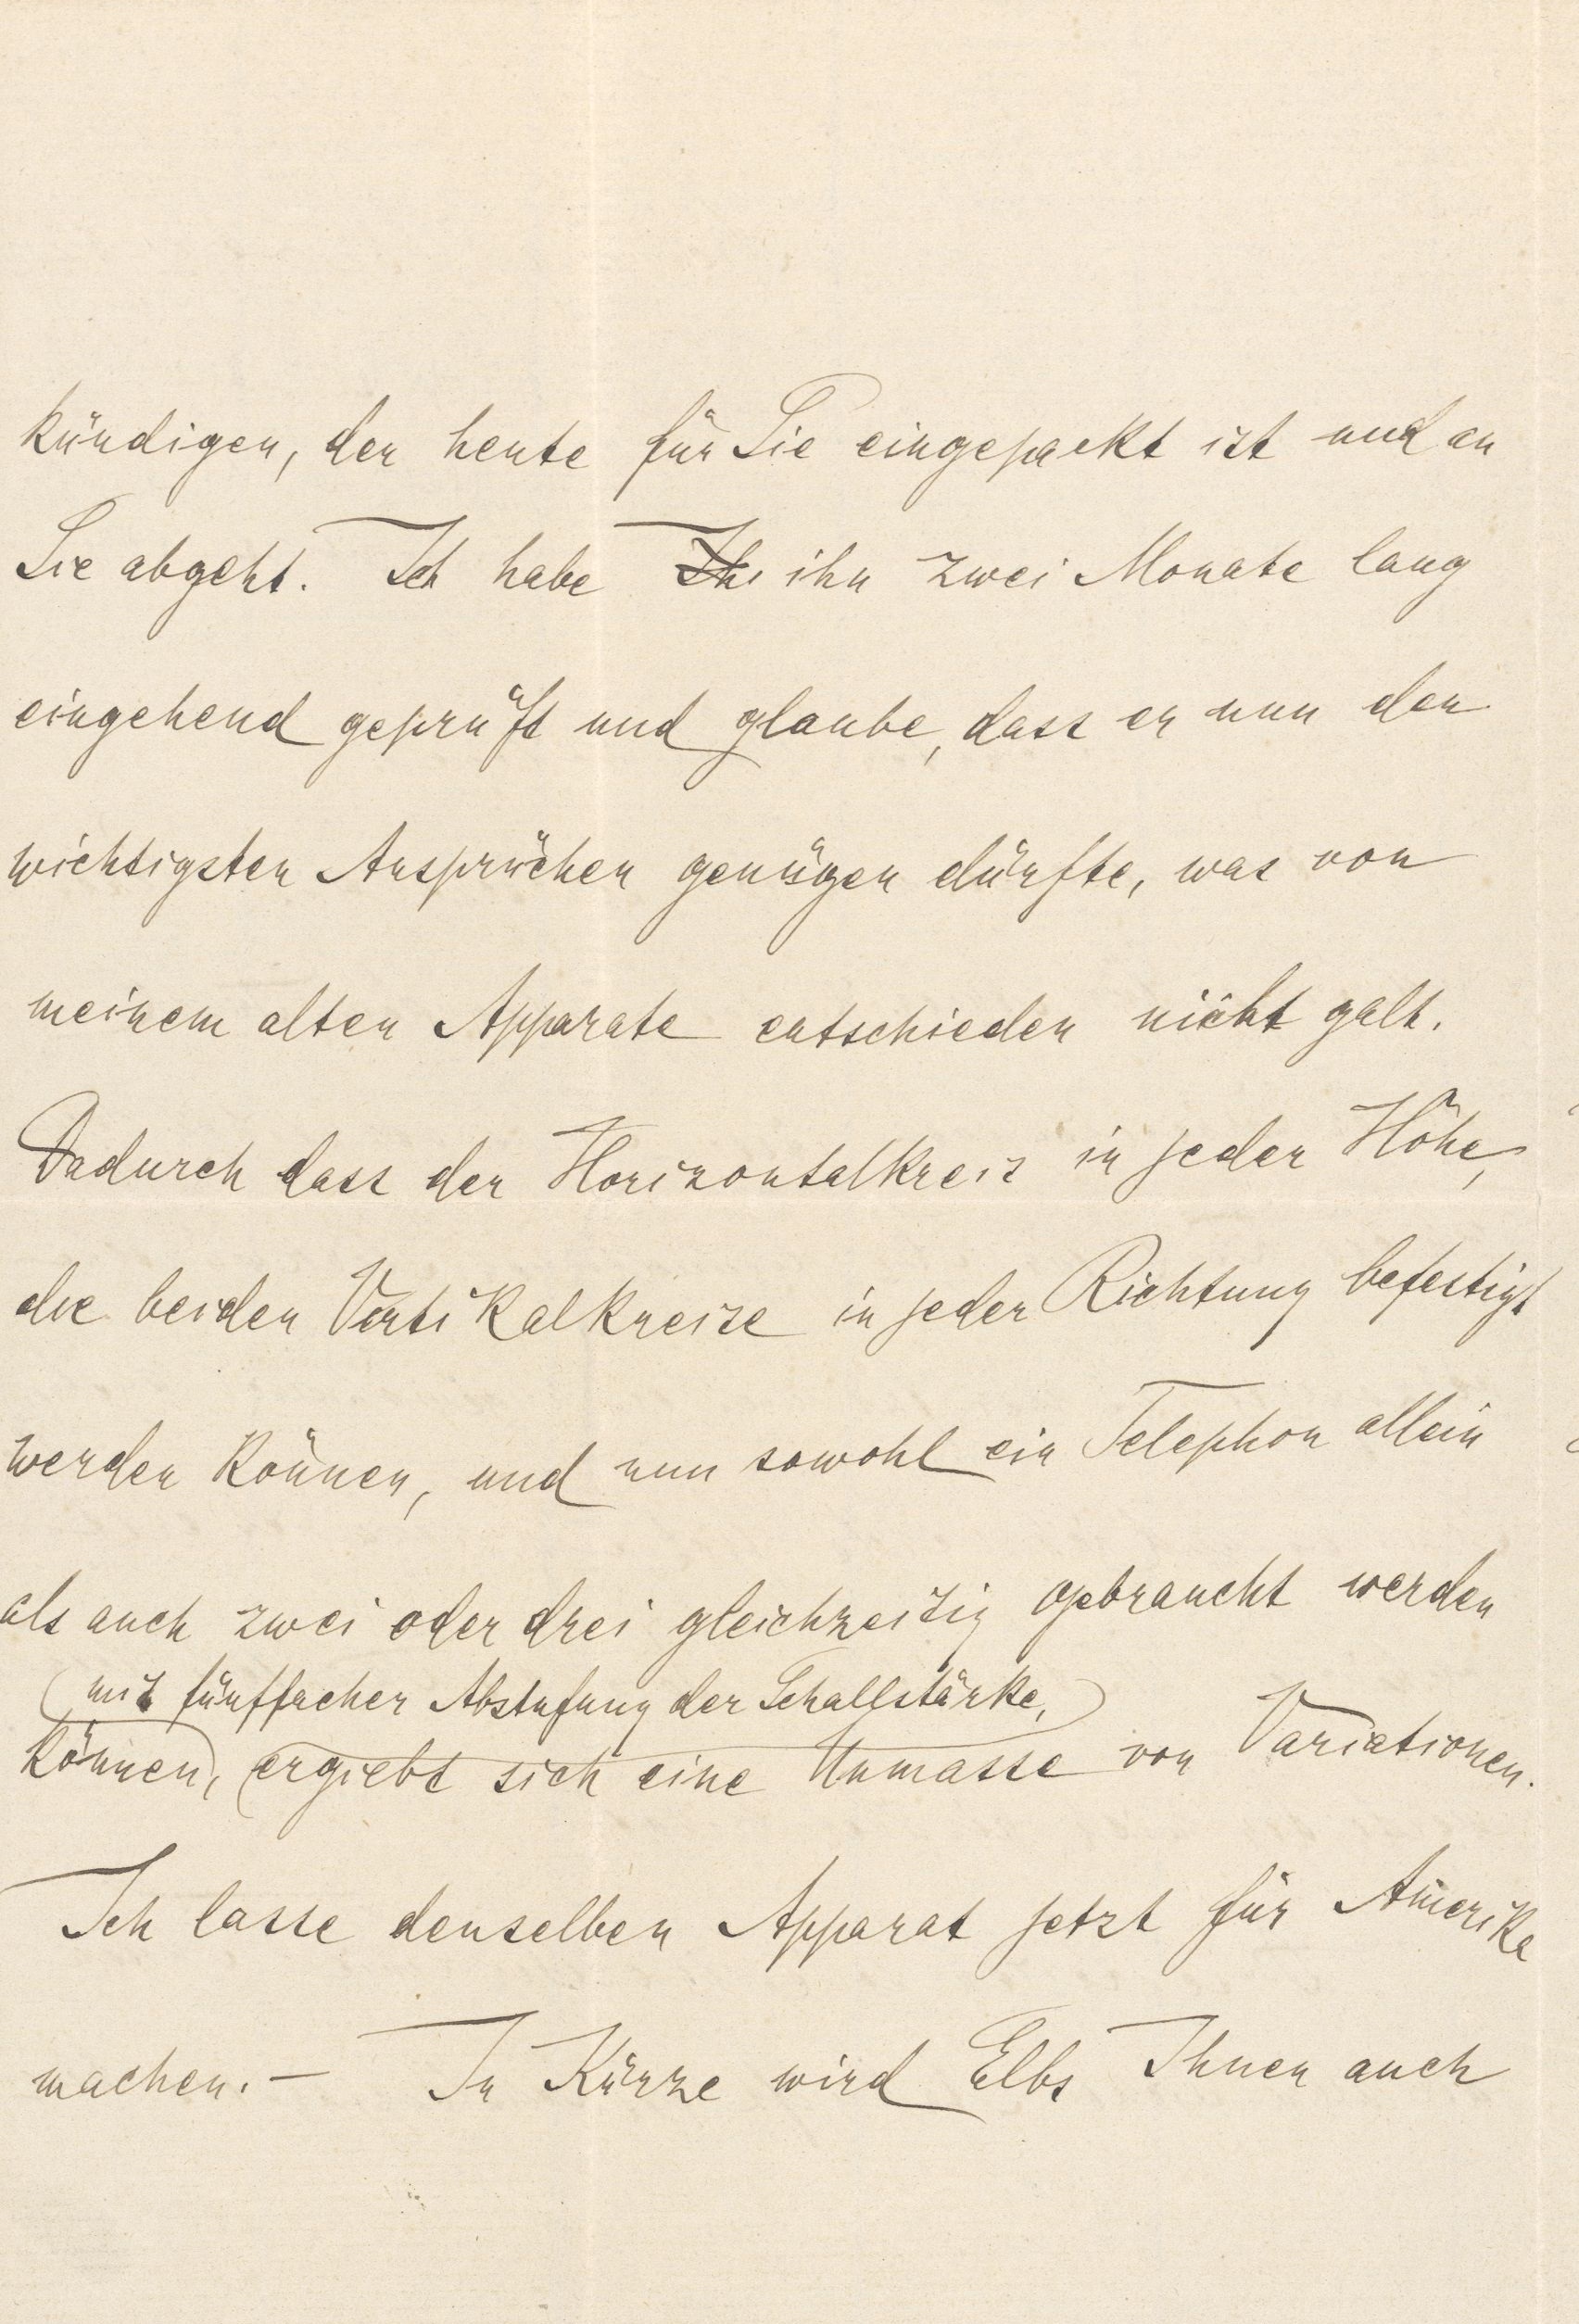 kündigen, der heute für Sie eingepackt ist und an
Sie abgeht. Ich habe Ihr ihn zwei Monate lang
eingehend geprüft und glaube, dass er nun den
wichtigsten Ansprüchen genügen dürfte, was von
meinem alten Apparate entschieden nicht galt.
Dadurch dass der Horizontalkreis in jeder Höhe,
die beiden Vertikalkreise in jeder Richtung befestigt
werden können, und nun sowohl ein Telephon allein
als auch zwei oder drei gleichzeitig gebraucht werden
mit fünffacher Abstufung der Schallstärke,
können, ergiebt sich eine Unmasse von Variationen.
Ich lasse denselben Apparat jetzt für Amerika
machen. – In Kürze wird Elbs Ihnen auch